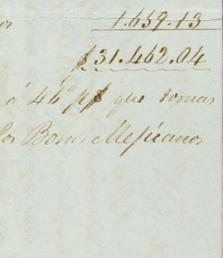 os 1.659.13
$31.462.04
á 46 p$ que tomas
los Bonos Mejicanos